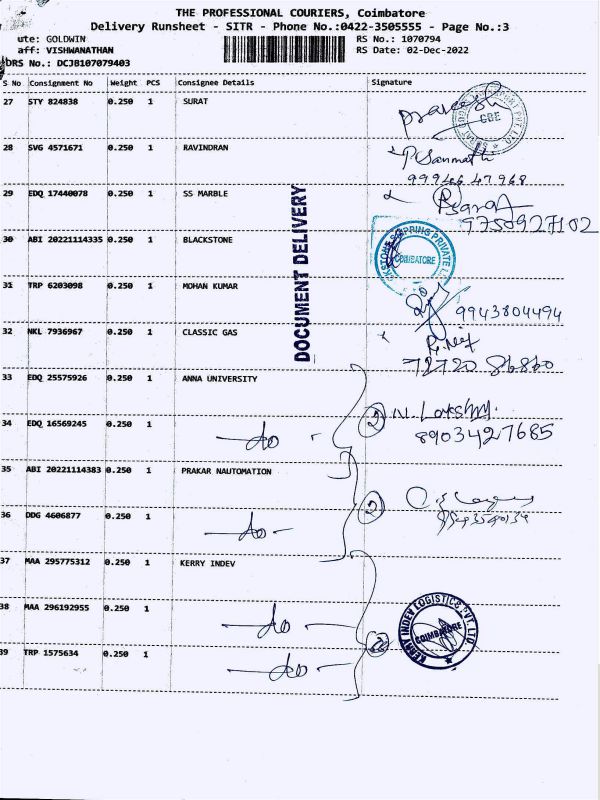 THE PROFESSIONAL COURIERS, Coimbatore
Delivery Runsheet - SITR - Phone No.:0422-3505555 - Page No.:3
ute: GOLDWIN RS No.: 1070794
aff: VISHWANATHAN RS Date: 02-Dec-2022
DRS No.: DCJB107079403
S No Consignment No Weight PCS Consignee Details Signature
27 STY 824838 0.250 1 SURAT
CBE
28 SVG 4571671 0.250 1 RAVINDRAN P Sanmath
99946 47968
29 EDQ 17440078 0.250 1 SS MARBLE
9750927102
30 ABI 20221114335 0.250 1 BLACKSTONE
COIMBATORE
31 TRP 6203098 0.250 1 MOHAN KUMAR
9943804494
32 NKL 7936967 0.250 1 CLASSIC GAS
72720 86860
DOCUMENT DELIVERY
33 EDQ 25575926 0.250 1 ANNA UNIVERSITY
2 N. Lakshmi
34 EDQ 16569245 0.250 1 -do-
8903427685
35 ABI 20221114383 0.250 1 PRAKAR NAUTOMATION
2
36 DDG 4606877 0.250 1 -do-
37 MAA 295775312 0.250 1 KERRY INDEV
38 MAA 296192955 0.250 1 -do-
KERRY INDEV LOGISTICS PVT. LTD.
COIMBATORE
39 TRP 1575634 0.250 1 -do-